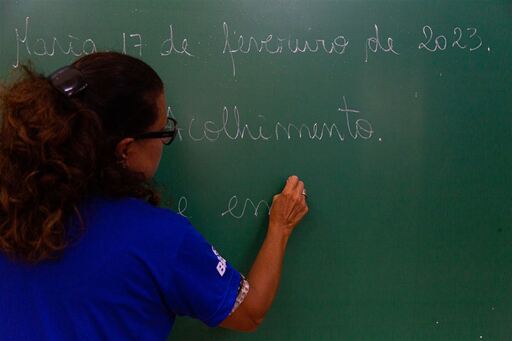 Maria 17 de fevereiro de 2023.
Acolhimento.
e en